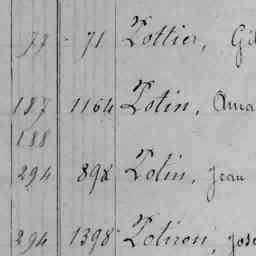 77 71 Pottier, Gil
187 1164 Potin, Ama
188
294 898 Potin, Jean
294 1398 Potiron, Jose